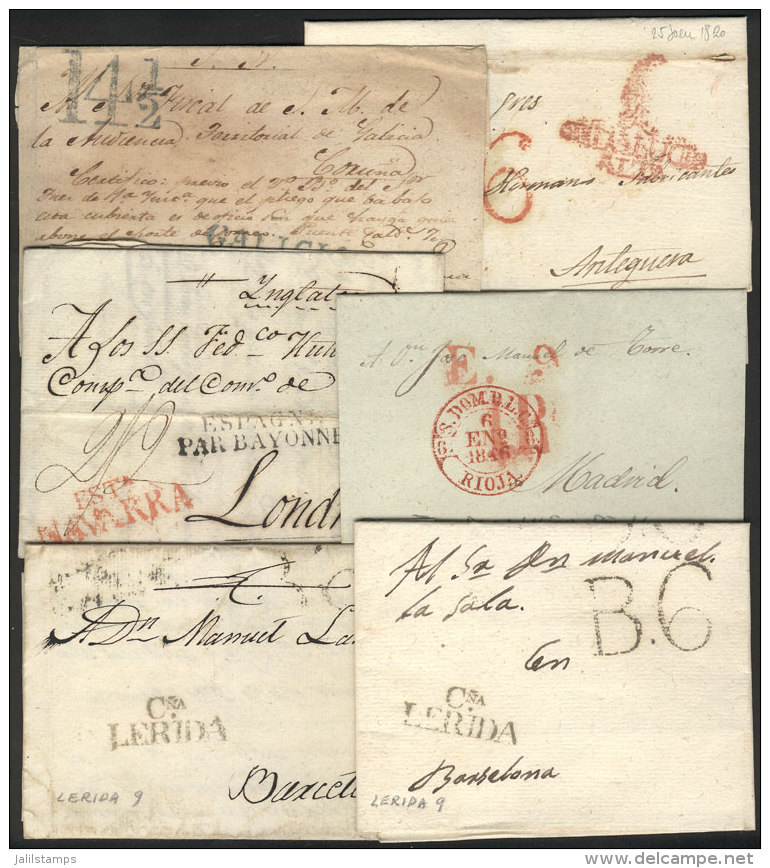 25 Jaen 1820
14 1/2
S. N.
Al Sr. Fiscal de S. M. de
la Audiencia Territorial de Galicia
Coruña
Certifico: previo el Vº Bº del Sor
Juez de 1ª Instª que el pliego que va bajo
esta cubierta es de oficio sin que haya quien
abone el porte de correo. Puente
GALICIA
6
ANDALUCIA
ALTA
6
Sres
Hermano Fabricantes
Antequera
Ynglat
A los SS. Fedco Huth
Compª del Comº de
ESPAGNE
PAR BAYONNE
2/2
ESTª
NAVARRA
Lond
A Dn Jose Manuel de Torre.
E. 9
1R
Sº S. DOM. D. L. CA
6
ENº
1846
RIOJA.
Madrid.
A Dn Manuel La
Cña.
LERIDA
Barcel
LERIDA 9
Al Sr Dn Manuel
La Sala.
B.6
en
Cña.
LERIDA
Barselona
LERIDA 9
Jalilstamps
delcampe.net